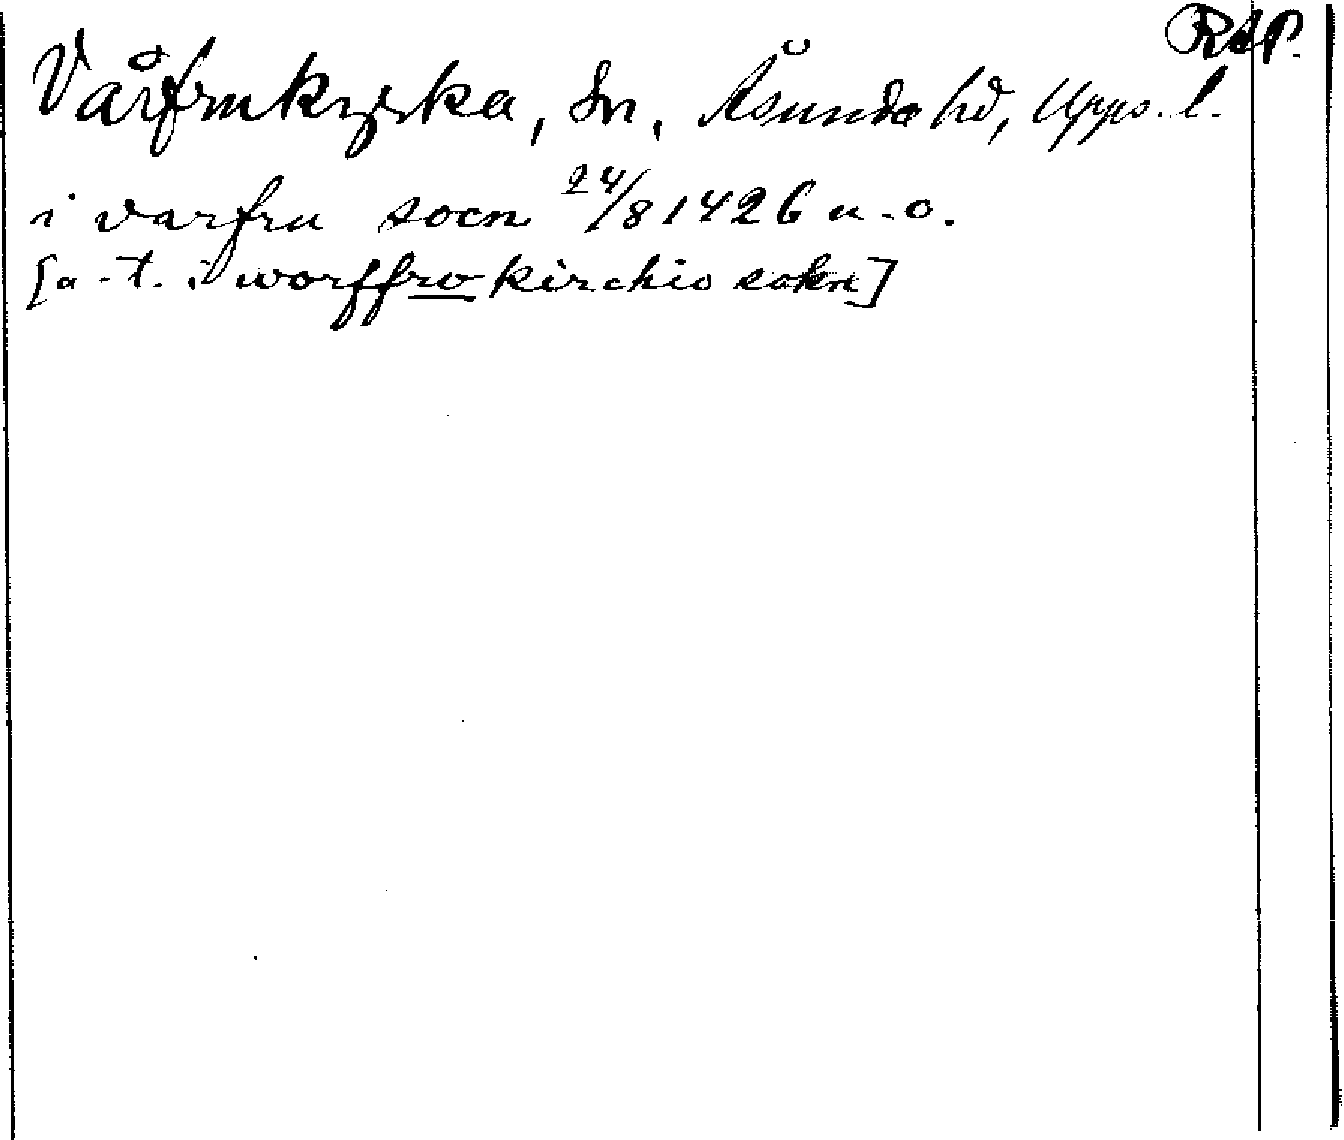 RAP.
Vårfrukyrka, Sn, Åsunda hd, Upps. l.
i varfru socn 24/8 1426 u. o.
[a-t. i worffrw kirchio sokn]